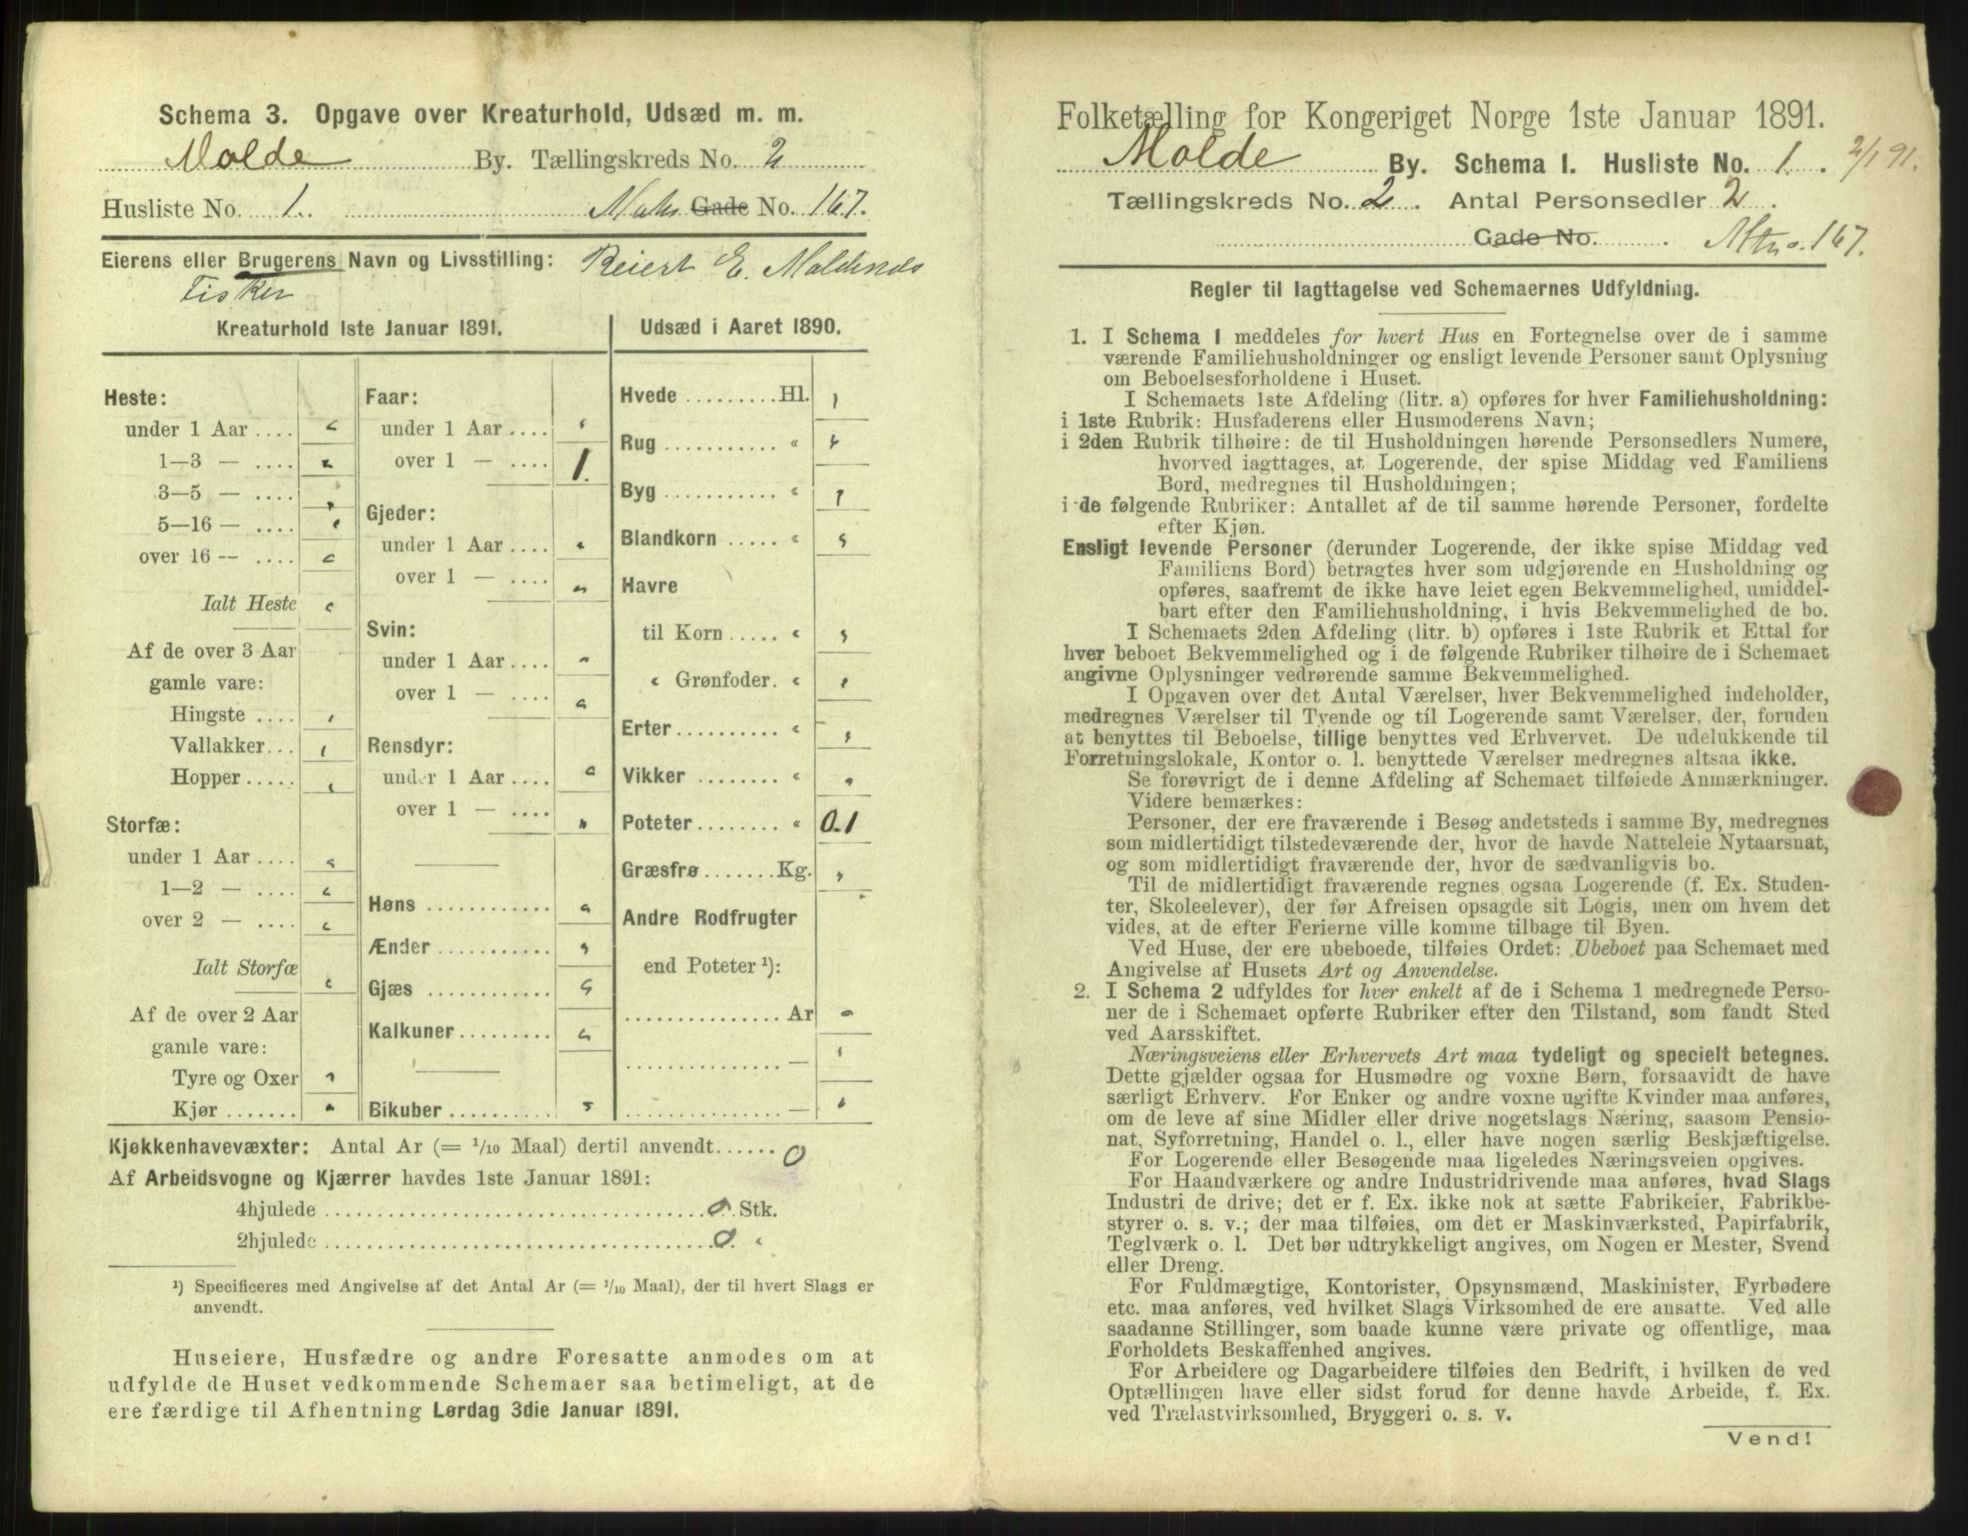 Schema 3. Opgave over Kreaturhold, Udsæd m. m.
Molde By. Tællingskreds No. 2
Husliste No. 1. Gade No. 167.
Eierens eller Brugerens Navn og Livsstilling: Reiert E.
Fisker
Kreaturhold 1ste Januar 1891.
Heste:
under 1 Aar
1—3 —
3—5 —
5—16 —
over 16 —
Ialt Heste
Af de over 3 Aar
gamle vare:
Hingste
Vallakker
Hopper
Storfæ:
under 1 Aar
1—2 —
over 2 —
Ialt Storfæ
Af de over 2 Aar
gamle vare:
Tyre og Oxer
Kjør
Faar:
under 1 Aar
over 1 — 1.
Gjeder:
under 1 Aar
over 1 —
Svin:
under 1 Aar
over 1 —
Rensdyr:
under 1 Aar
over 1 —
Høns
Ænder
Gjæs
Kalkuner
Bikuber
Udsæd i Aaret 1890.
Hvede Hl.
Rug "
Byg "
Blandkorn "
Havre
til Korn "
" Grønfoder. "
Erter "
Vikker "
Poteter " 0.1
Græsfrø Kg.
Andre Rodfrugter
end Poteter ¹):
Ar
—
—
Kjøkkenhavevæxter: Antal Ar (= 1/10 Maal) dertil anvendt 0
Af Arbeidsvogne og Kjærrer havdes 1ste Januar 1891:
4hjulede 0 Stk.
2hjulede 0. "
¹) Specificeres med Angivelse af det Antal Ar (= 1/10 Maal), der til hvert Slags er
anvendt.
Huseiere, Husfædre og andre Foresatte anmodes om at
udfylde de Huset vedkommende Schemaer saa betimeligt, at de
ere færdige til Afhentning Lørdag 3die Januar 1891.
Folketælling for Kongeriget Norge 1ste Januar 1891.
Molde By. Schema I. Husliste No. 1. 2/1 91.
Tællingskreds No. 2. Antal Personsedler 2.
Gade No. Mtno. 167.
Regler til Iagttagelse ved Schemaernes Udfyldning.
1. I Schema 1 meddeles for hvert Hus en Fortegnelse over de i samme
værende Familiehusholdninger og ensligt levende Personer samt Oplysning
om Beboelsesforholdene i Huset.
I Schemaets 1ste Afdeling (litr. a) opføres for hver Familiehusholdning:
i 1ste Rubrik: Husfaderens eller Husmoderens Navn;
i 2den Rubrik tilhøire: de til Husholdningen hørende Personsedlers Numere,
hvorved iagttages, at Logerende, der spise Middag ved Familiens
Bord, medregnes til Husholdningen;
i de følgende Rubriker: Antallet af de til samme hørende Personer, fordelte
efter Kjøn.
Ensligt levende Personer (derunder Logerende, der ikke spise Middag ved
Familiens Bord) betragtes hver som udgjørende en Husholdning og
opføres, saafremt de ikke have leiet egen Bekvemmelighed, umiddel-
bart efter den Familiehusholdning, i hvis Bekvemmelighed de bo.
I Schemaets 2den Afdeling (litr. b) opføres i 1ste Rubrik et Ettal for
hver beboet Bekvemmelighed og i de følgende Rubriker tilhøire de i Schemaet
angivne Oplysninger vedrørende samme Bekvemmelighed.
I Opgaven over det Antal Værelser, hver Bekvemmelighed indeholder,
medregnes Værelser til Tyende og til Logerende samt Værelser, der, foruden
at benyttes til Beboelse, tillige benyttes ved Erhvervet. De udelukkende til
Forretningslokale, Kontor o. l. benyttede Værelser medregnes altsaa ikke.
Se forøvrigt de i denne Afdeling af Schemaet tilføiede Anmærkninger.
Videre bemærkes:
Personer, der ere fraværende i Besøg andetsteds i samme By, medregnes
som midlertidigt tilstedeværende der, hvor de havde Natteleie Nytaarsnat,
og som midlertidigt fraværende der, hvor de sædvanligvis bo.
Til de midlertidigt fraværende regnes ogsaa Logerende (f. Ex. Studen-
ter, Skoleelever), der før Afreisen opsagde sit Logis, men om hvem det
vides, at de efter Ferierne ville komme tilbage til Byen.
Ved Huse, der ere ubeboede, tilføies Ordet: Ubeboet paa Schemaet med
Angivelse af Husets Art og Anvendelse.
2. I Schema 2 udfyldes for hver enkelt af de i Schema 1 medregnede Perso-
ner de i Schemaet opførte Rubriker efter den Tilstand, som fandt Sted
ved Aarsskiftet.
Næringsveiens eller Erhvervets Art maa tydeligt og specielt betegnes.
Dette gjælder ogsaa for Husmødre og voxne Børn, forsaavidt de have
særligt Erhverv. For Enker og andre voxne ugifte Kvinder maa anføres,
om de leve af sine Midler eller drive nogetslags Næring, saasom Pensio-
nat, Syforretning, Handel o. l., eller have nogen særlig Beskjæftigelse.
For Logerende eller Besøgende maa ligeledes Næringsveien opgives.
For Haandværkere og andre Industridrivende maa anføres, hvad Slags
Industri de drive; det er f. Ex. ikke nok at sætte Fabrikeier, Fabrikbe-
styrer o. s. v.; der maa tilføies, om det er Maskinværksted, Papirfabrik,
Teglværk o. l. Det bør udtrykkeligt angives, om Nogen er Mester, Svend
eller Dreng.
For Fuldmægtige, Kontorister, Opsynsmænd, Maskinister, Fyrbødere
etc. maa anføres, ved hvilket Slags Virksomhed de ere ansatte. Ved alle
saadanne Stillinger, som baade kunne være private og offentlige, maa
Forholdets Beskaffenhed angives.
For Arbeidere og Dagarbeidere tilføies den Bedrift, i hvilken de ved
Optællingen have eller sidst forud for denne havde Arbeide, f. Ex.
ved Trælastvirksomhed, Bryggeri o. s. v.
Vend!